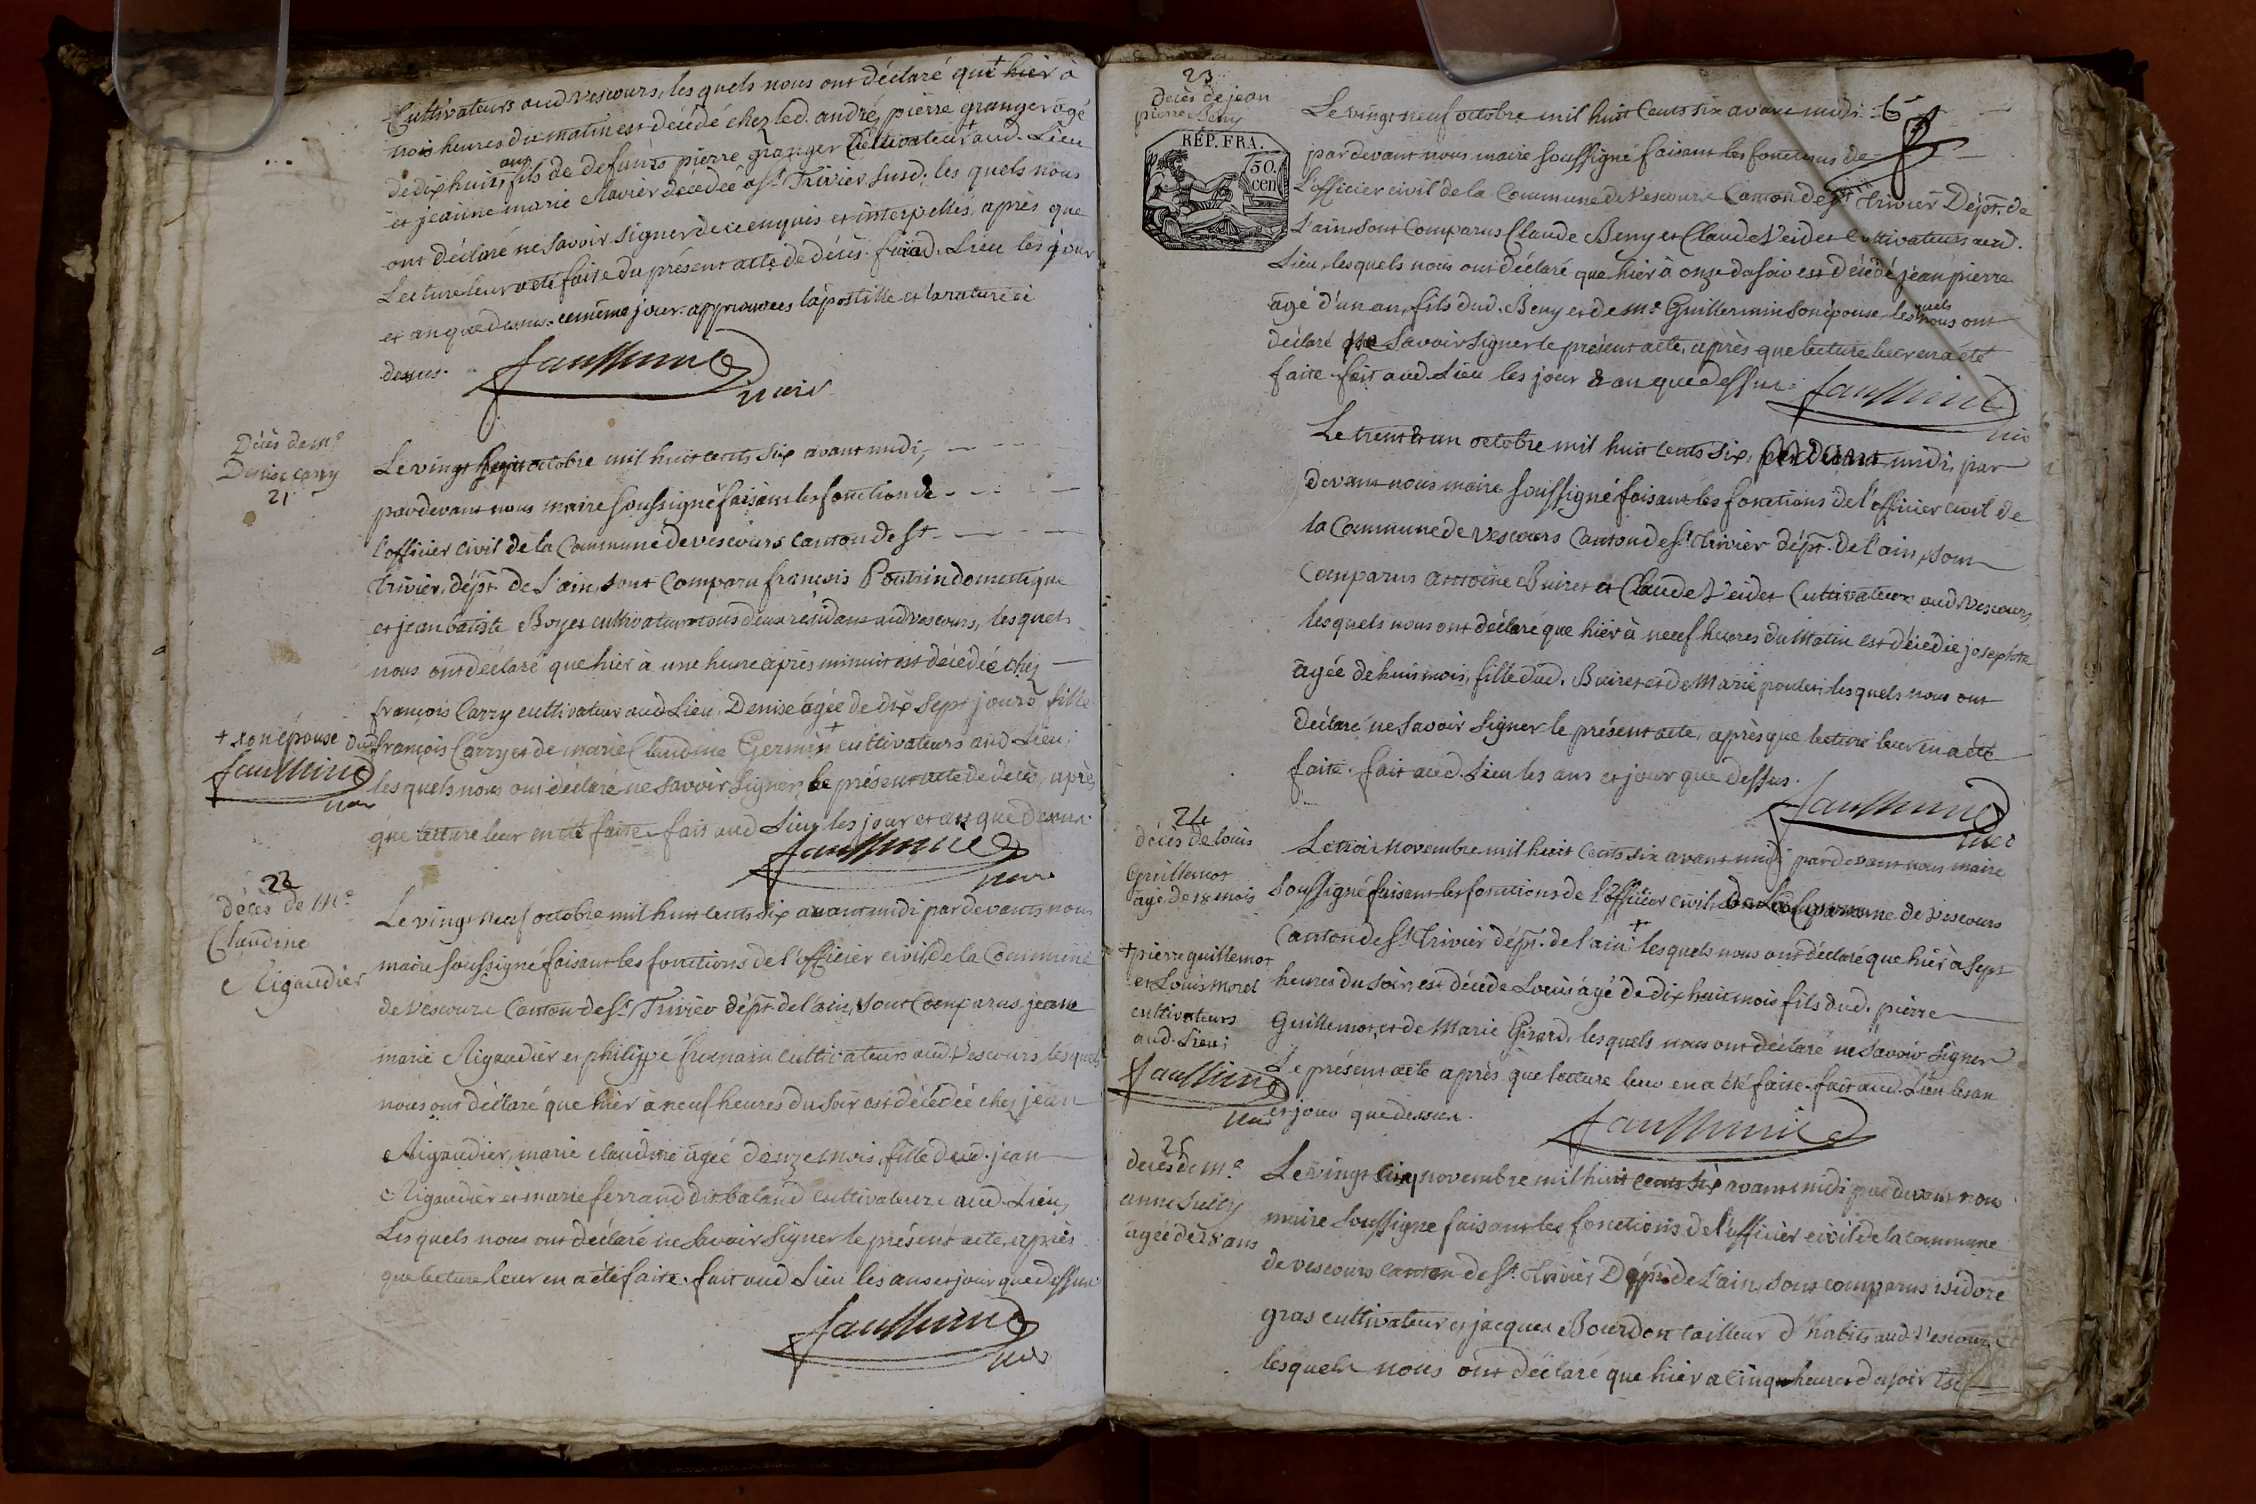 Cultivateurs aud Vescours, les quels nous ont déclaré que + hier à
trois heures du matin est décédé chez led. andré, pierre granger âgé
de dix huit ans fils de defunts pierre granger Cultivateur + aud. Lieu
et jeanne marie Mavier décédée a St. Trivier susd. les quels nous
ont déclaré ne savoir signer de ce enquis et interpellés, après que
Lecture leur a été faite du présent acte de décès. fait aud. Lieu les jour
et an que dessus. ce même jour. approuvées l'apostille et la rature ci
dessus.
maire
Décès de Me.
Denise Carry
21
Le vingt huit octobre mil huit cents six avant midi,
par devant nous maire soussigné faisant les fonction de
l'officier civil de la Commune de vescours canton de St.
Trivier, dépt. de L'ain, sont Comparu francois Poutrin domestique
et jean batiste Boyet cultivateur tous deux résidans aud vescours, lesquels
nous ont déclaré que hier à une heure après minuit est décédée chez
françois Carry cultivateur aud Lieu, Denise âgée de dix sept jours fille
+ son épouse dud. françois Carry et de marie Claudine Germin + cultivateurs aud Lieu;
les quels nous ont déclaré ne savoir signer, le présent acte de décès, après
que lecture leur en été faite. fait aud Lieu les jour et an que dessus.
maire
22
décès de Me.
Claudine
Rigaudier
Le vingt neuf octobre mil huit cents six avant midi par devants nous
maire soussigné faisant les fonctions de l'officier civil de la Commune
de Vescours Canton de St. Trivier dépt. de l'ain, sont Comparus jeane
marie Rigaudier et philippe humain cultivateurs aud Vescours, les quels
nous ont déclaré que hier à neuf heures du soir est décédée chez jean
Rigaudier, marie claudine âgée d'onze mois, fille dud. jean
Rigaudier et marie ferrand dit baland cultivateurs aud. Lieu,
Les quels nous ont déclaré ne savoir signer le présent acte, après
que lecture leur en a été faite. fait aud Lieu les ans et jour que dessus
maire
23
Décès de jean
pierre Beny
RÉP. FRA.
50.
cen
Le vingt neuf octobre mil huit Cents six avant midi
par devant nous maire soussigné faisant les fonctions de
L'officier civil de la Commune de Vescours Canton de St. Trivier Dépt. de
L'ain, sont Comparus Claude Beny et Claude Veidet Cultivateurs aud.
Lieu, lesquels nous ont déclaré que hier à onze du soir est décédé jean pierre
âgé d'un an, fils dud. Beny et de Me. Guillermin son épouse, les quels nous ont
déclaré ne savoir signer le présent acte, après que lecture leur en a été
faite. fait aud. Lieu les jour & an que dessus.
Le trent & un octobre mil huit cents six, midi, par
devant nous maire soussigné faisant les fonctions de l'officier civil de
la Commune de Vescours Canton de St. Trivier dépt. de l'ain, sont
Comparus antoine Buiret et Claude Veidet Cultivateurs aud Vescours,
lesquels nous ont déclaré que hier à neuf heures du Matin est décédée josephte
âgée de huit mois, fille dud. Buiret et de Marie poulet; lesquels nous ont
déclaré ne savoir signer le présent acte, après que lecture leur en a été
faite. fait aud. Lieu les ans et jour que dessus.
24
décès de louis
Guillemot
âgé de 18 mois
Le trois Novembre mil huit Cents six avant midi par devant nous maire
soussigné faisant les fonctions de l'officier civil de la Commune de Vescours
Canton de St. Trivier dépt. de l'ain + lesquels nous ont déclaré que hier à sept
+ pierre guillemot
et Louis Morel
cultivateurs
aud. Lieu;
heures du soir, est décédé Louis âgé de dix huit mois fils dud. pierre
Guillemot, et de Marie Girard, lesquels nous ont déclaré ne savoir signer
Le présent acte après que lecture leur en a été faite. fait aud. Lieu les an
et jour que dessus.
25
decès de Me.
anne Juilly
âgée de 28 ans
Le vingt cinq novembre mil huit cents six avant midi par devant nous
maire soussigné faisant les fonctions de l'officier civil de la commune
de vescours canton de St. Trivier Dépt. de L'ain, sont comparus isidore
gras cultivateur et jacques Bourdon tailleur d'habits aud. Vescours
lesquels nous ont déclaré que hier a cinq heures du soir est